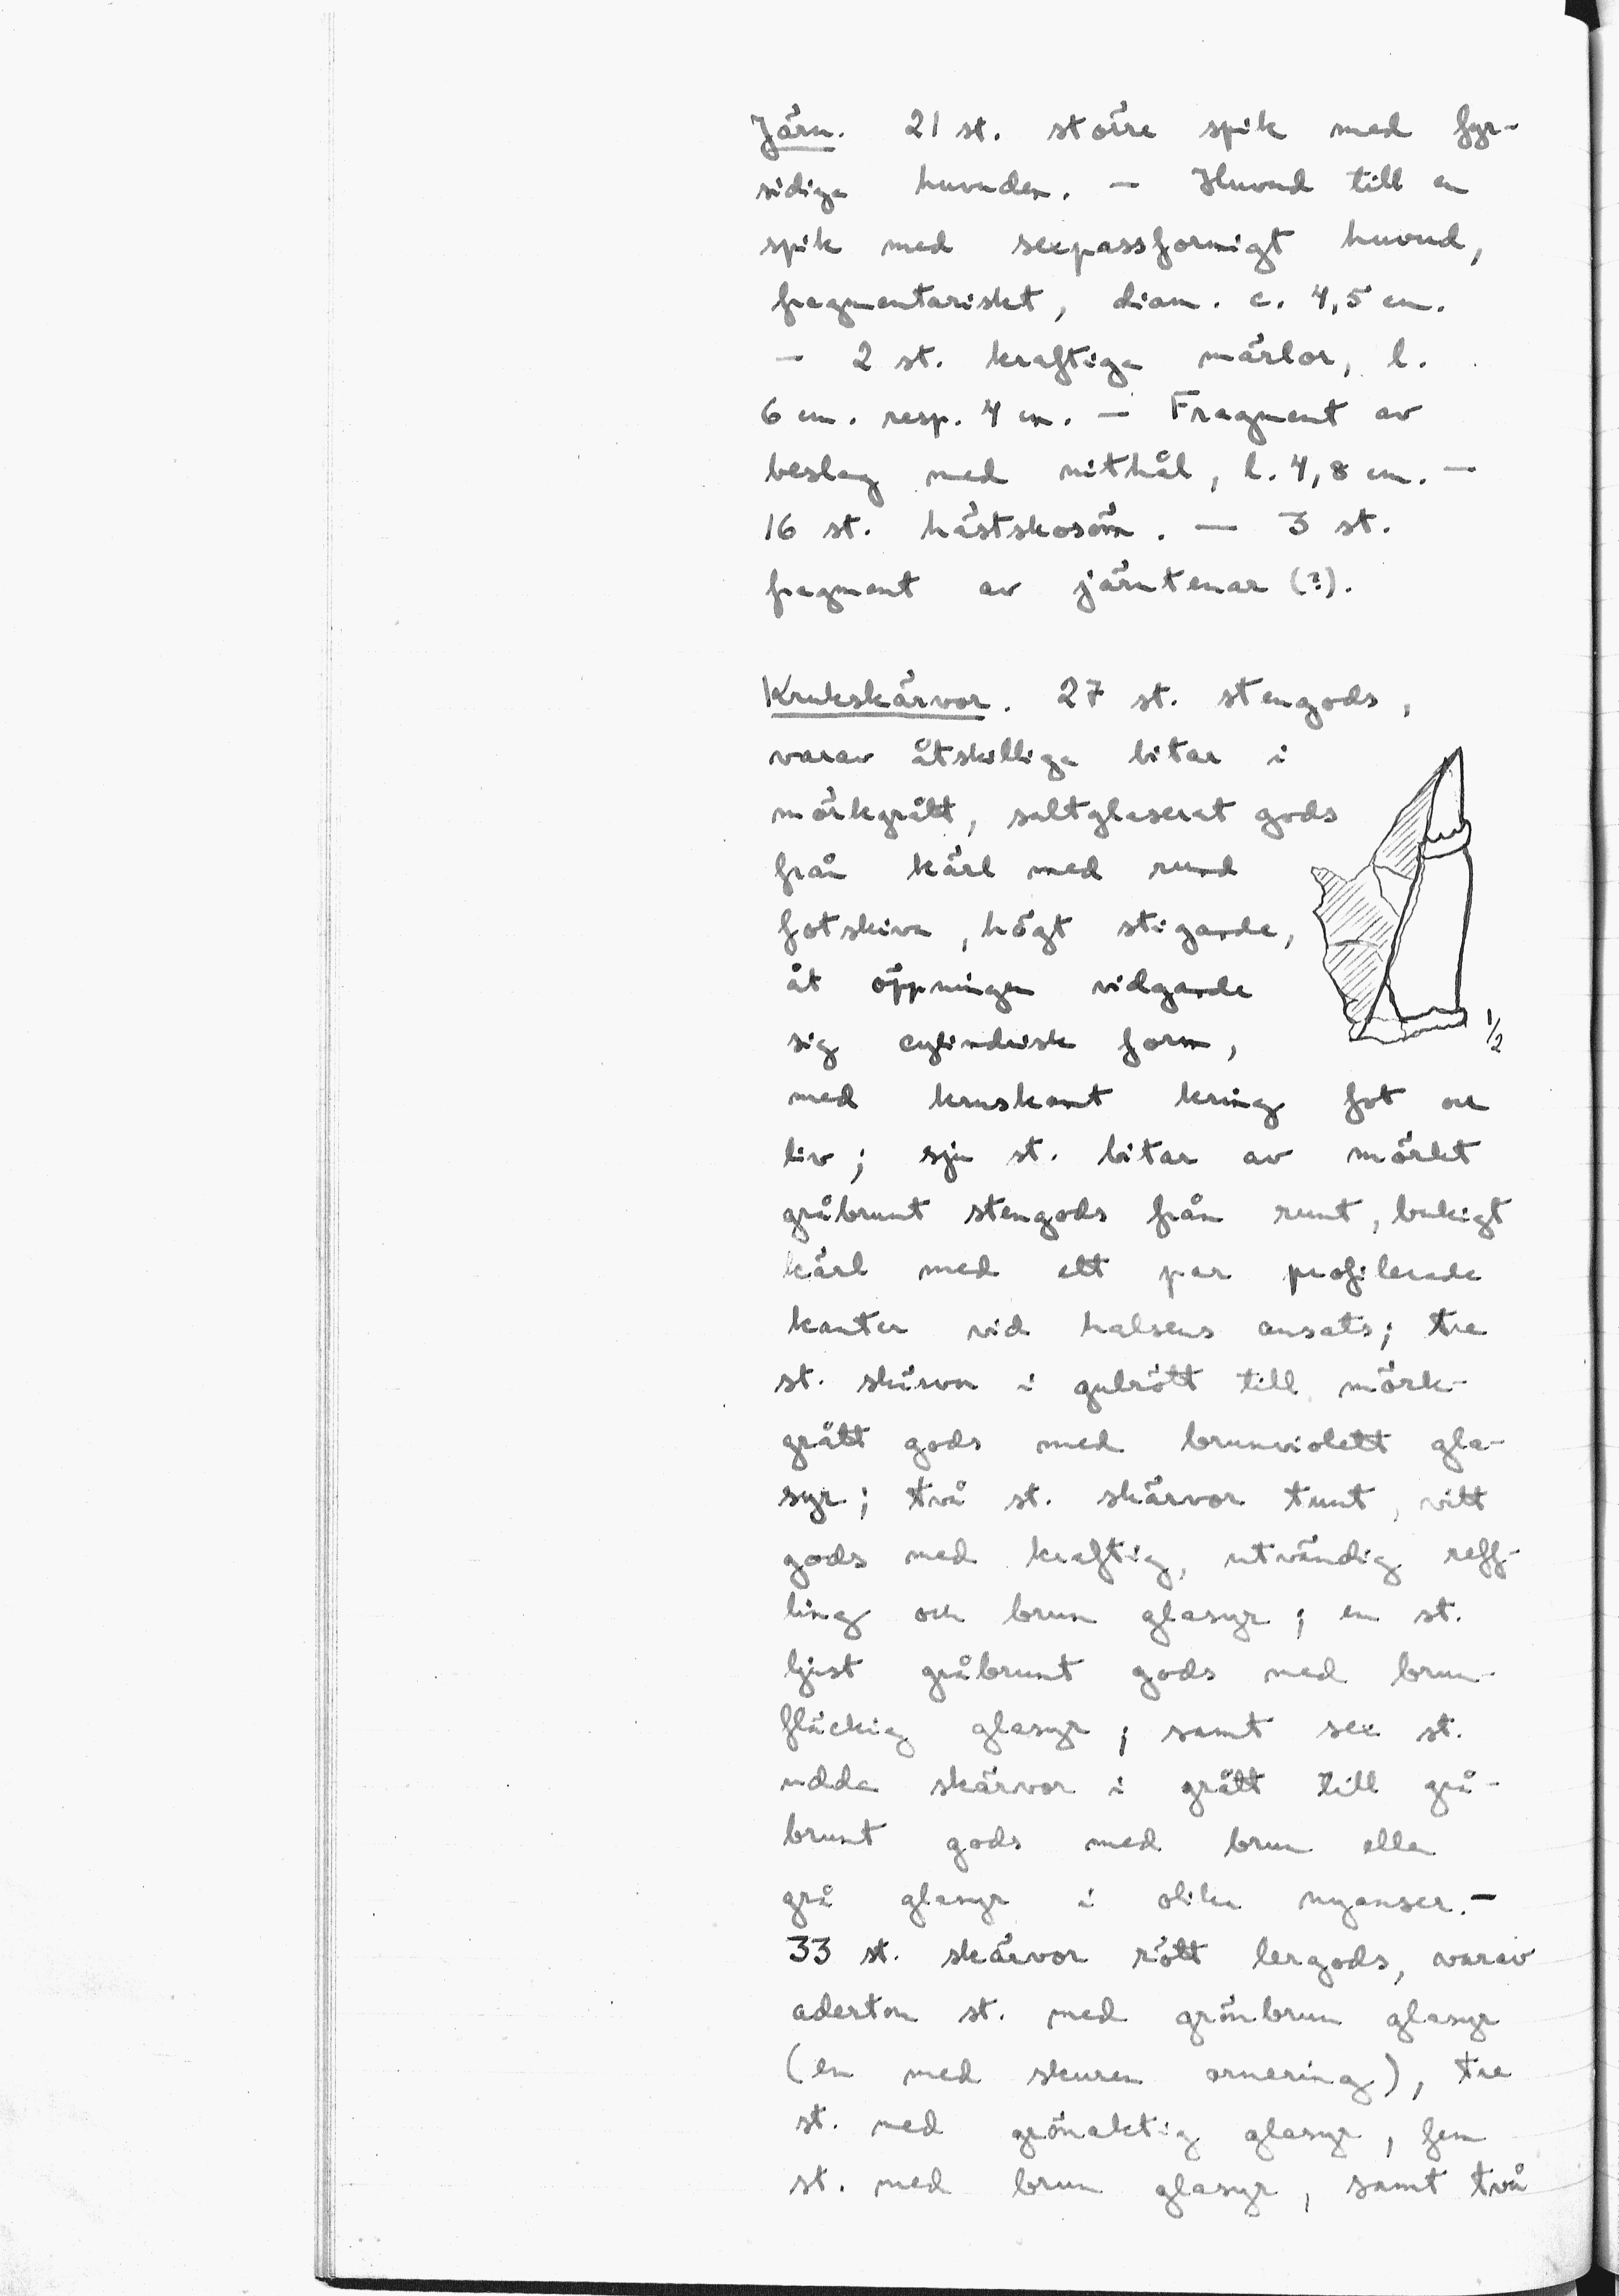 Järn. 21 st. större spik med fyr-
sidiga huvuden. — Huvud till en
spik med sexpassformigt huvud,
fragmentariskt, diam. c. 4,5 cm.
— 2 st. kraftiga märlor, l.
6 cm. resp. 4 cm. — Fragment av
beslag med nithål, l. 4,8 cm. —
16 st. hästskosöm. — 3 st.
fragment av järntenar (?).
Krukskärvor. 27 st. stengods,
varav åtskilliga bitar i
mörkgrått, saltglaserat gods
från kärl med rund
fotskiva, högt stigande,
åt öppningen vidgande
sig cylindrisk form,
1/2
med kruskant kring fot och
liv; sju st. bitar av mörkt
gråbrunt stengods från runt, bukigt
kärl med ett par profilerade
kanter vid halsens ansats; tre
st. skärvor i gulrött till mörk-
grått gods med brunviolett gla-
syr; två st. skärvor tunt, vitt
gods med kraftig, utvändig reff-
ling och brun glasyr; en st.
ljust gråbrunt gods med brun-
fläckig glasyr; samt sex st.
udda skärvor i grått till grå-
brunt gods med brun eller
grå glasyr i olika nyanser. —
33 st. skärvor rött lergods, varav
aderton st. med grönbrun glasyr
(en med skuren ornering), tre
st. med grönaktig glasyr, fem
st. med brun glasyr, samt två